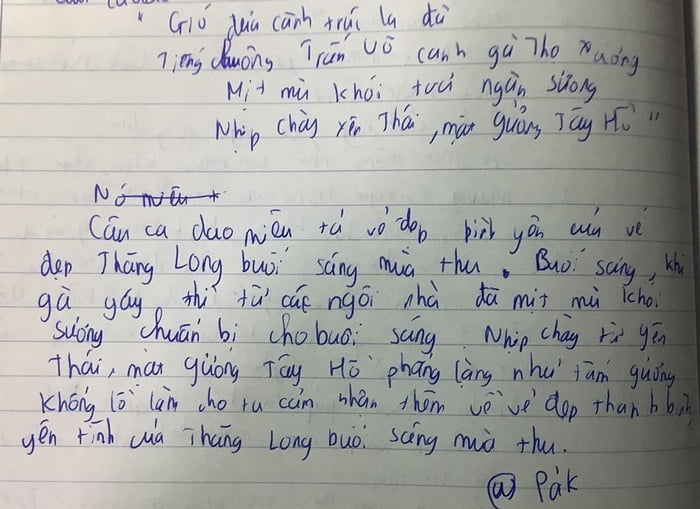 " Gió đưa cành trúc la đà
Tiếng chuông Trấn Võ canh gà Thọ Xướng
Mịt mù khói tưả ngàn sương
Nhịp chày Yên Thái, mặt gương Tây Hồ "
Câu ca dao miêu tả vẻ đẹp bình yên của vẻ
đẹp Thăng Long buổi sáng mùa thu. Buổi sáng, khi
gà gáy thì từ các ngôi nhà đã mịt mù khói
sương chuẩn bị cho buổi sáng. Nhịp chày từ Yên
Thái, mặt gương Tây Hồ phẳng lặng như tấm gương
khổng lồ làm cho ta cảm nhận thêm về vẻ đẹp thanh bình,
yên tĩnh của Thăng Long buổi sáng mùa thu.
@ Pảk